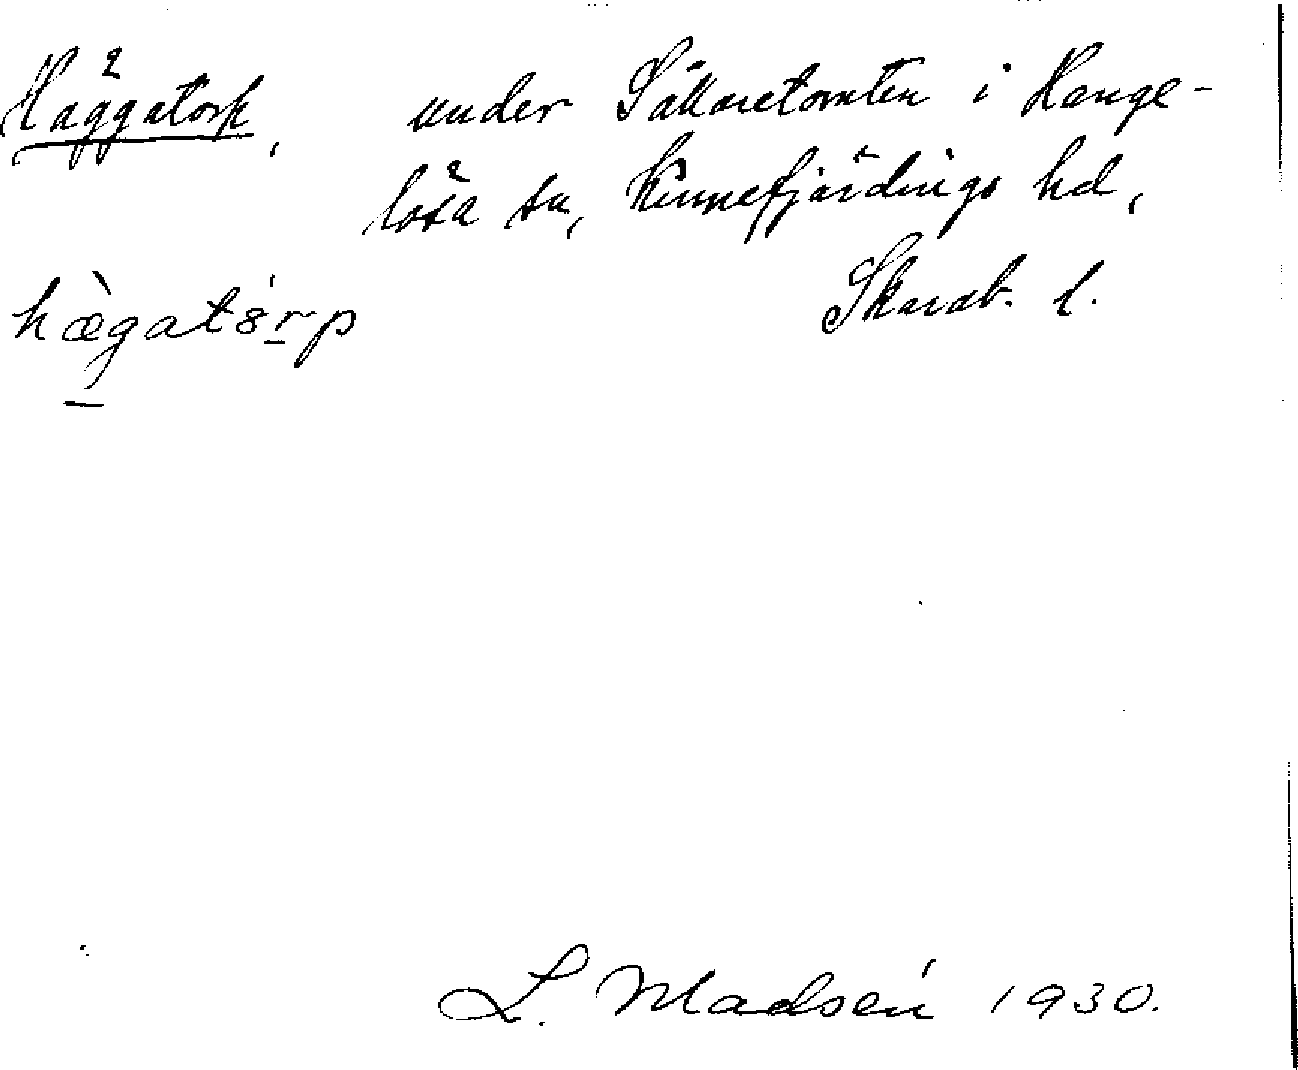 Häggatorp, under Källaretomten i Hange-
lösa sn, Kinnefjärdings hd,
Skarab. l.
hæ̀gatȯrp
L. Madsén 1930.